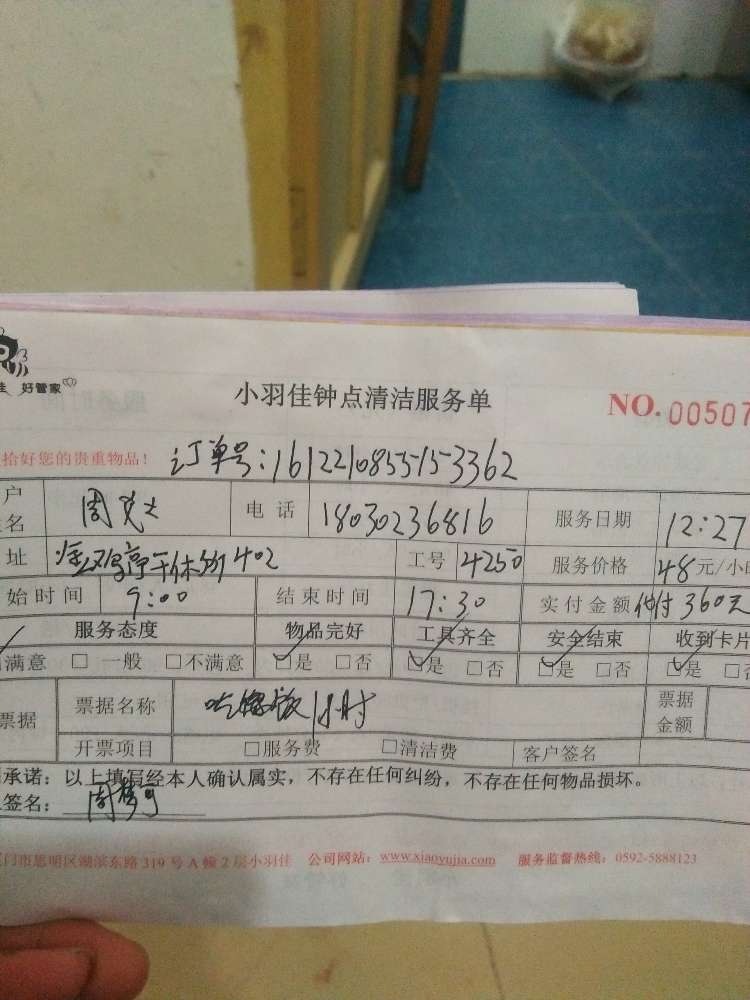 好管家
小羽佳钟点清洁服务单 NO.00507
拾好您的贵重物品! 订单号:161221085515-3362
户名 周 电话 18030236816 服务日期 12:27
址 402 工号 4250 服务价格 48元/小
始时间 9:00 结束时间 17:30 实付金额 付360元
服务态度 物品完好 工具齐全 安全结束 收到卡片
满意 □一般 □不满意 □是 □否 □是 □否 □是 □否 □是 □否
票据 票据名称 小时 票据金额
开票项目 □服务费 □清洁费 客户签名
承诺:以上填写经本人确认属实,不存在任何纠纷,不存在任何物品损坏。
签名: 周
门市思明区湖滨东路319号A幢2层小羽佳 公司网站:www.xiaoyujia.com 服务监督热线:0592-5888123